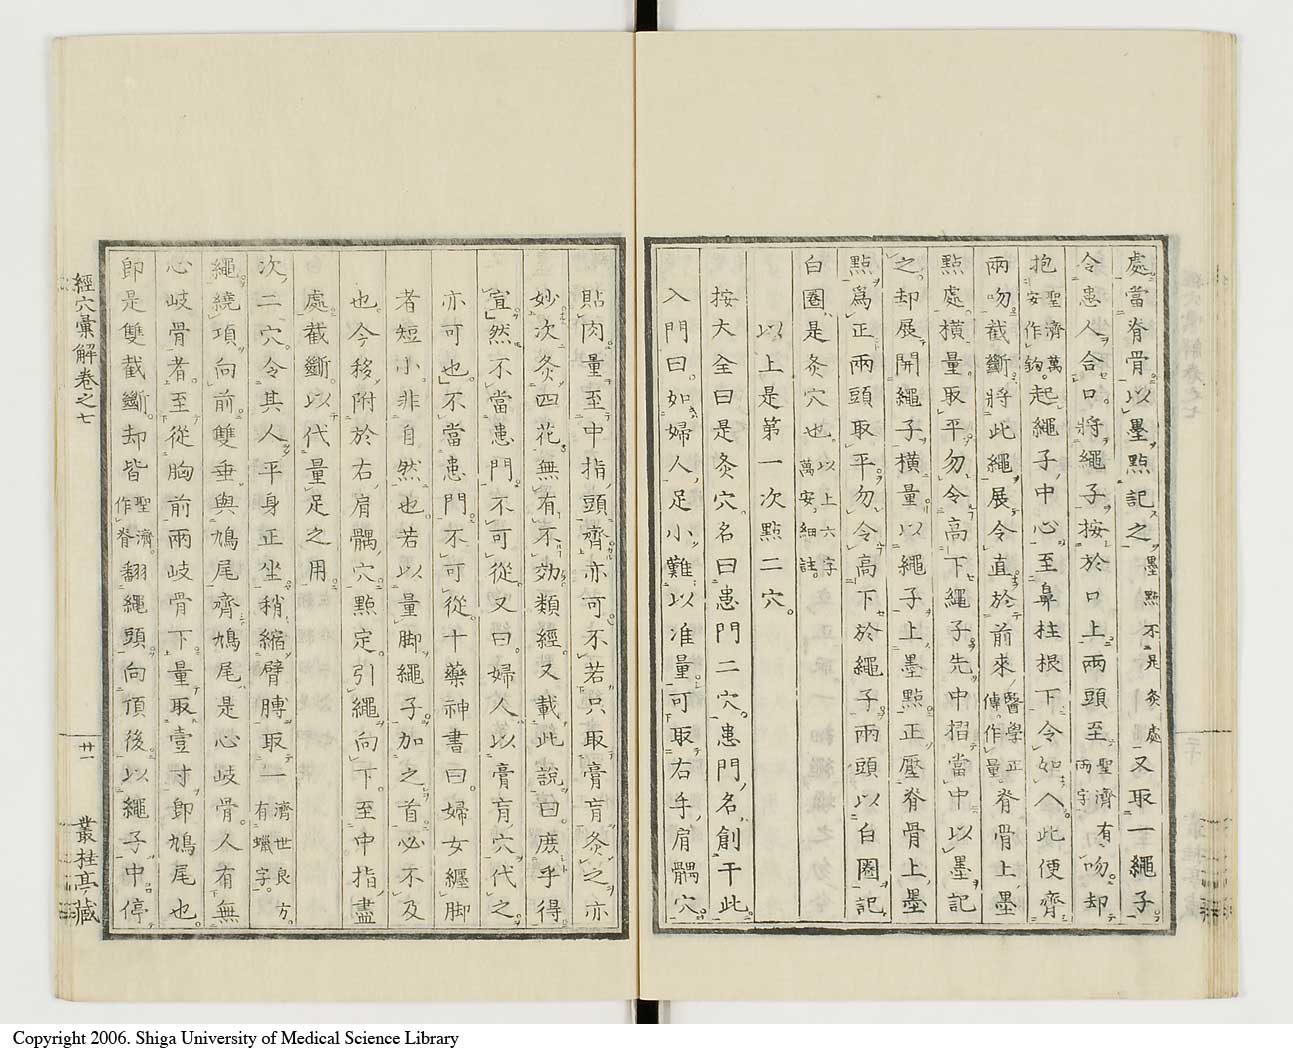 處當脊骨以墨點記之墨點不是灸處又取一繩子
令患人合口將繩子按於口上兩頭至聖濟有兩字吻却
抱聖濟萬安作鉤起繩子中心至鼻柱根下令如入此便齊
兩吻截斷將此繩展令直於前來醫學正傳作量脊骨上墨
點處橫量取平勿令高下繩子先中摺當中以墨記
之却展開繩子橫量以繩子上墨點正壓脊骨上墨
點爲正兩頭取平勿令高下於繩子兩頭以白圈記
白圈是灸穴也以上六字萬安細註
以上是第一次點二穴
按大全曰是灸穴名曰患門二穴患門名創于此
入門曰如婦人足小難以准量可取右手肩髃穴
貼肉量至中指頭齊亦可不若只取膏肓灸之亦
妙次灸四花無有不効類經又載此說曰庻乎得
宜然不當患門不可從又曰婦人以膏肓穴代之
亦可也不當患門不可從十藥神書曰婦女纏脚
者短小非自然也若以量脚繩子加之首必不及
也今移附於右肩髃穴點定引繩向下至中指盡
處截斷以代量足之用
次二穴令其人平身正坐稍縮臂膊取一濟世良方有蠟字
繩繞項向前雙垂與鳩尾齊鳩尾是心岐骨人有無
心岐骨者至從胸前兩岐骨下量取壹寸卽鳩尾也
卽是雙截斷却皆聖濟作脊翻繩頭向項後以繩子中停
經穴彙解卷之七
廿一
叢桂亭藏
Copyright 2006. Shiga University of Medical Science Library